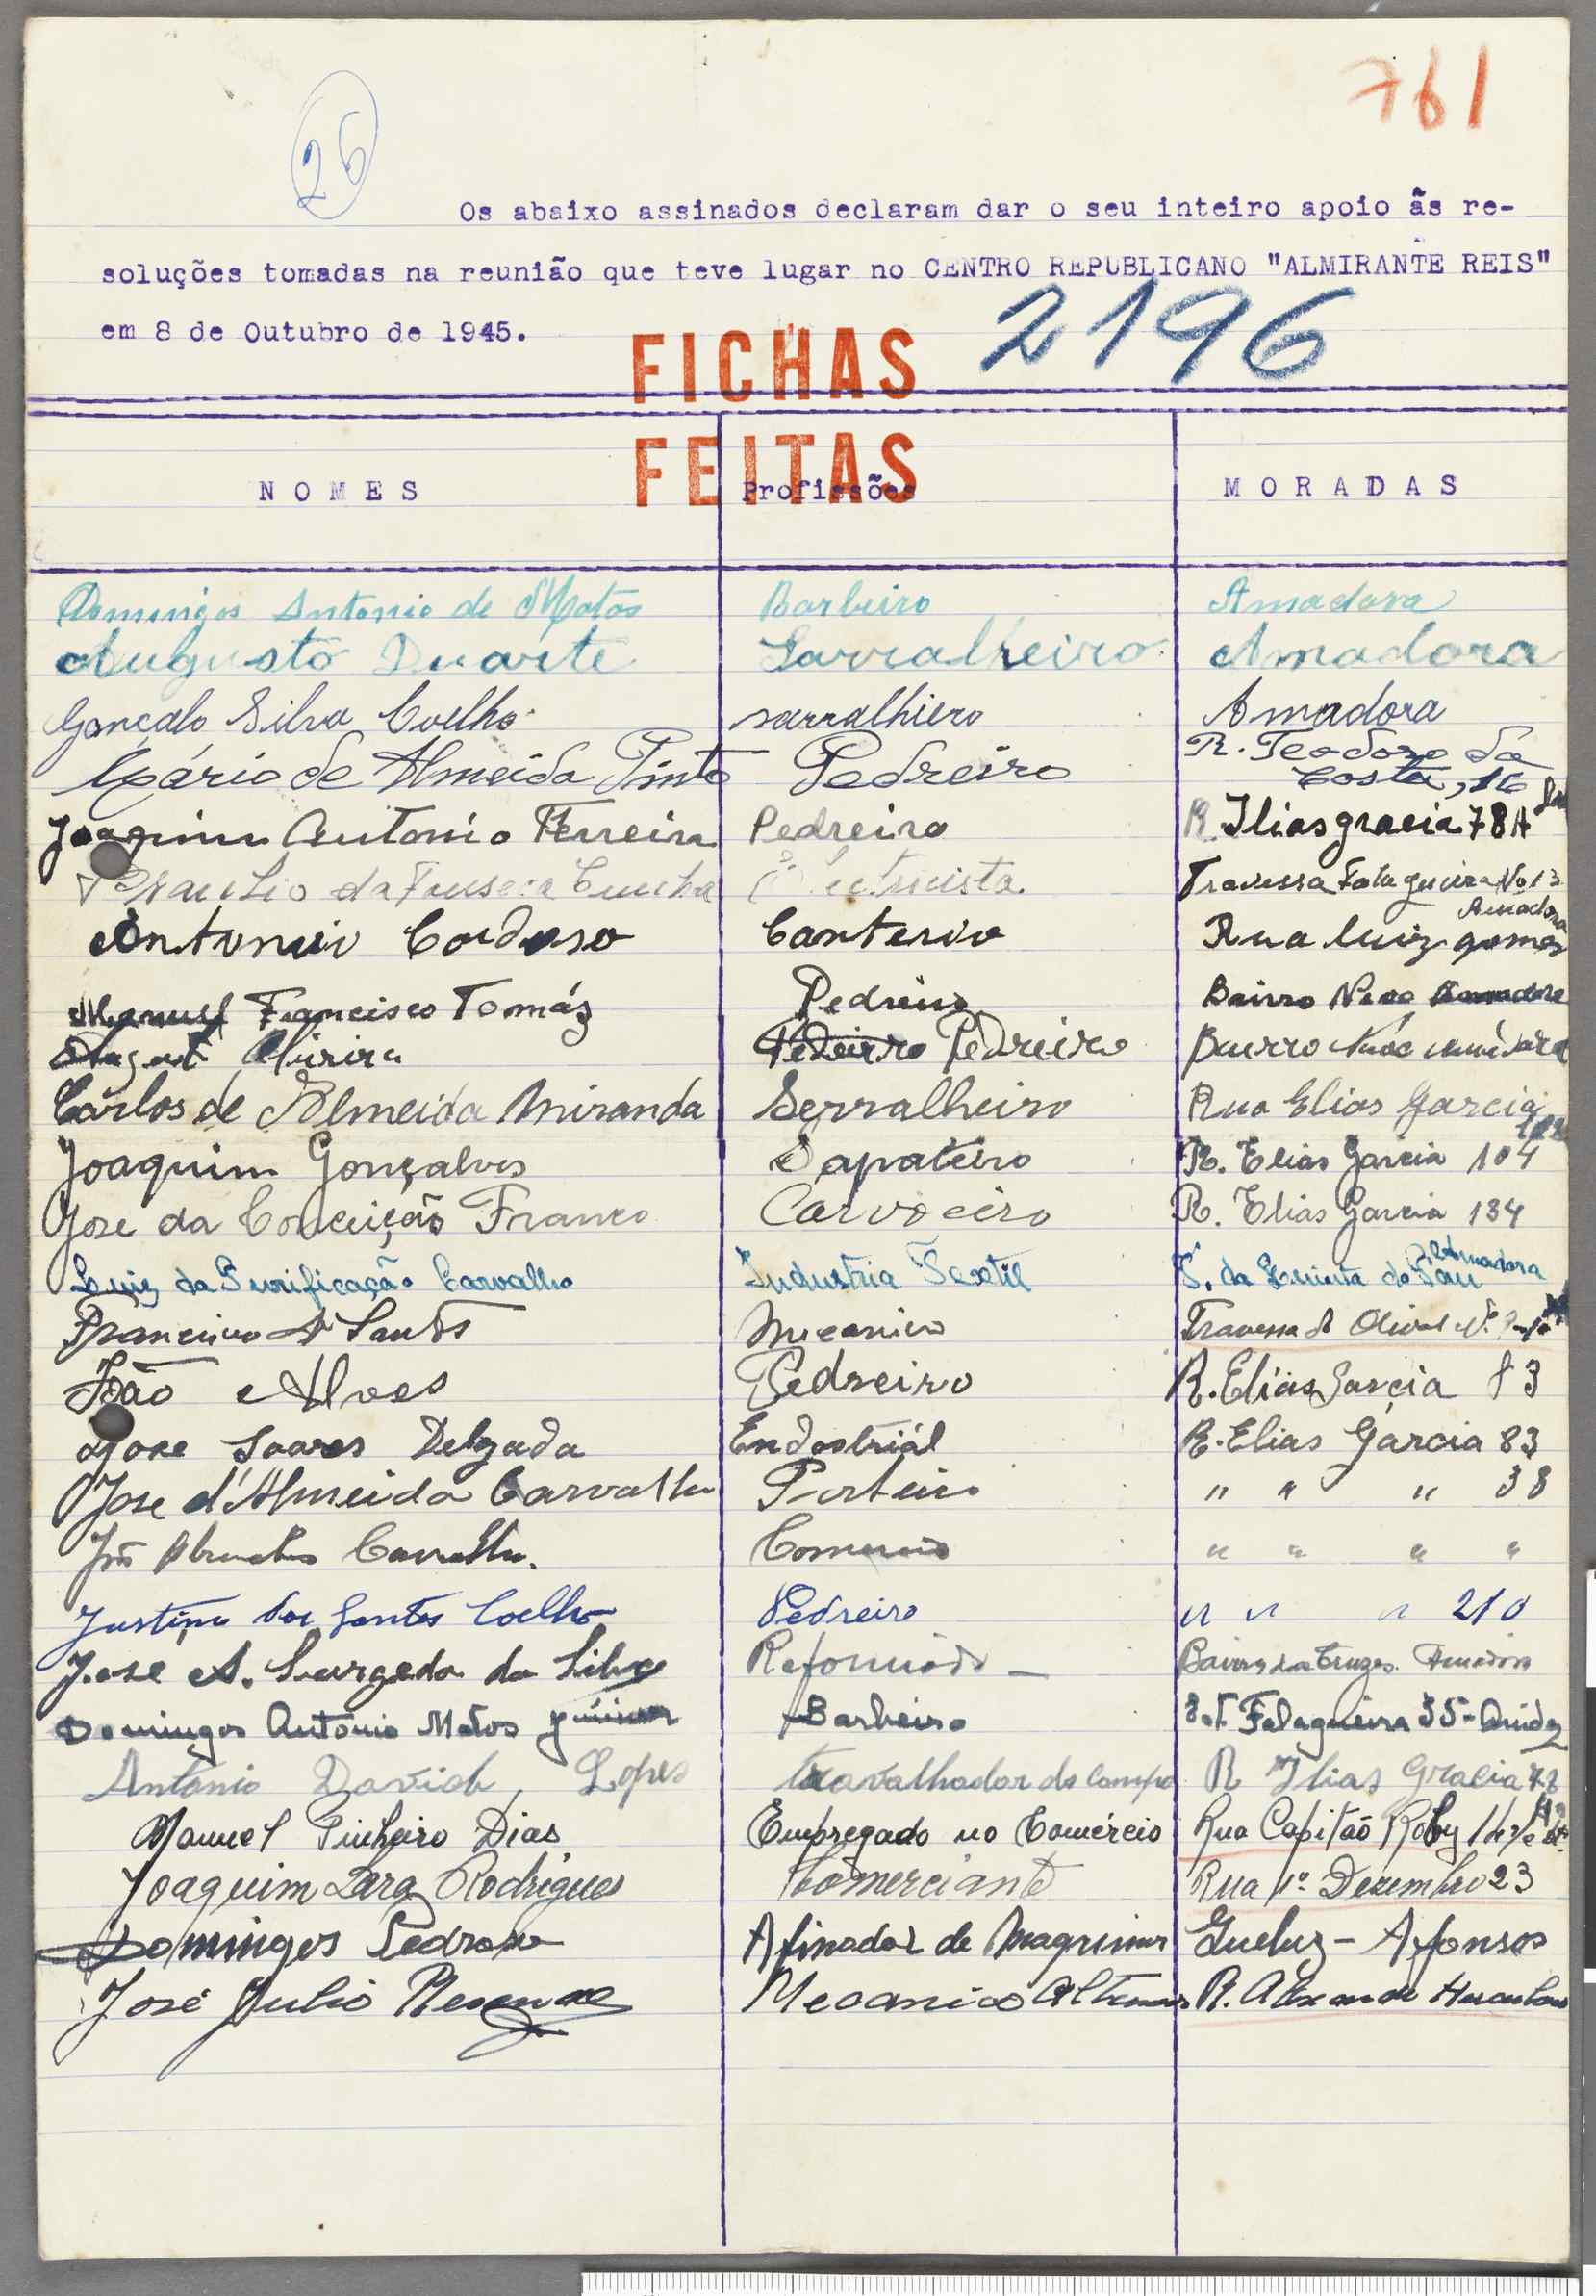 761
26
Os abaixo assinados declaram dar o seu inteiro apoio ãs re-
soluções tomadas na reunião que teve lugar no CENTRO REPUBLICANO "ALMIRANTE REIS"
em 8 de Outubro de 1945.
2196
FICHAS
FEITAS
NOMES Profissões MORADAS
Domingos Antonio de Matos Barbeiro Amadora
Augusto Duarte Sarralheiro Amadora
Gonçalo Silva Coelho sarralhiero Amadora
Mário de Almeida Pinto Pedreiro R. Teodoro da
Costa, 16
Joaquim Antonio Ferreira Pedreiro R. Ilias gracia 78 A
da Fonseca Cunha Travessa Falagueira No 13
Amadora
Antonio Cardoso Canteiro Rua Luiz gomes
Manuel Francisco Tomáz Pedreiro Bairro Novo Amadora
Pedreiro Pedreiro Bairro
Carlos de Almeida Miranda Serralheiro Rua Elias Garcia
Joaquim Gonçalves Sapateiro R. Elias Garcia 104
Jose da Conceição Franco Carvoeiro R. Elias Garcia 134
Luiz da Purificação Carvalho Industria Textil da Quinta do Amadora
Francisco Santos Mecanico Travessa do Olival
João Alves Pedreiro R. Elias Garcia 83
Jose Soares Delgada Endostriál R. Elias Garcia 83
Jose d'Almeida Carvalho Porteiro " " " 38
Carvalho. Comercio " " " "
Justino dos Santos Coelho Pedreiro " " " 210
Jose A. da Silva Reformado - Amadora
Domingos Antonio Matos Júnior Barbeiro Est. Falagueira 35-
Antonio David, Lopes travalhador do Campo R Ilias Gracia 78
Manuel Pinheiro Dias Empregado no Comércio Rua Capitão Roby
Joaquim Lara Rodrigues Comerciante Rua 1º Dezembro 23
Domingos Pedroso Afinador de Maquinas Queluz - Afonsos
José Julio Mecanico R. Alexandre Herculano